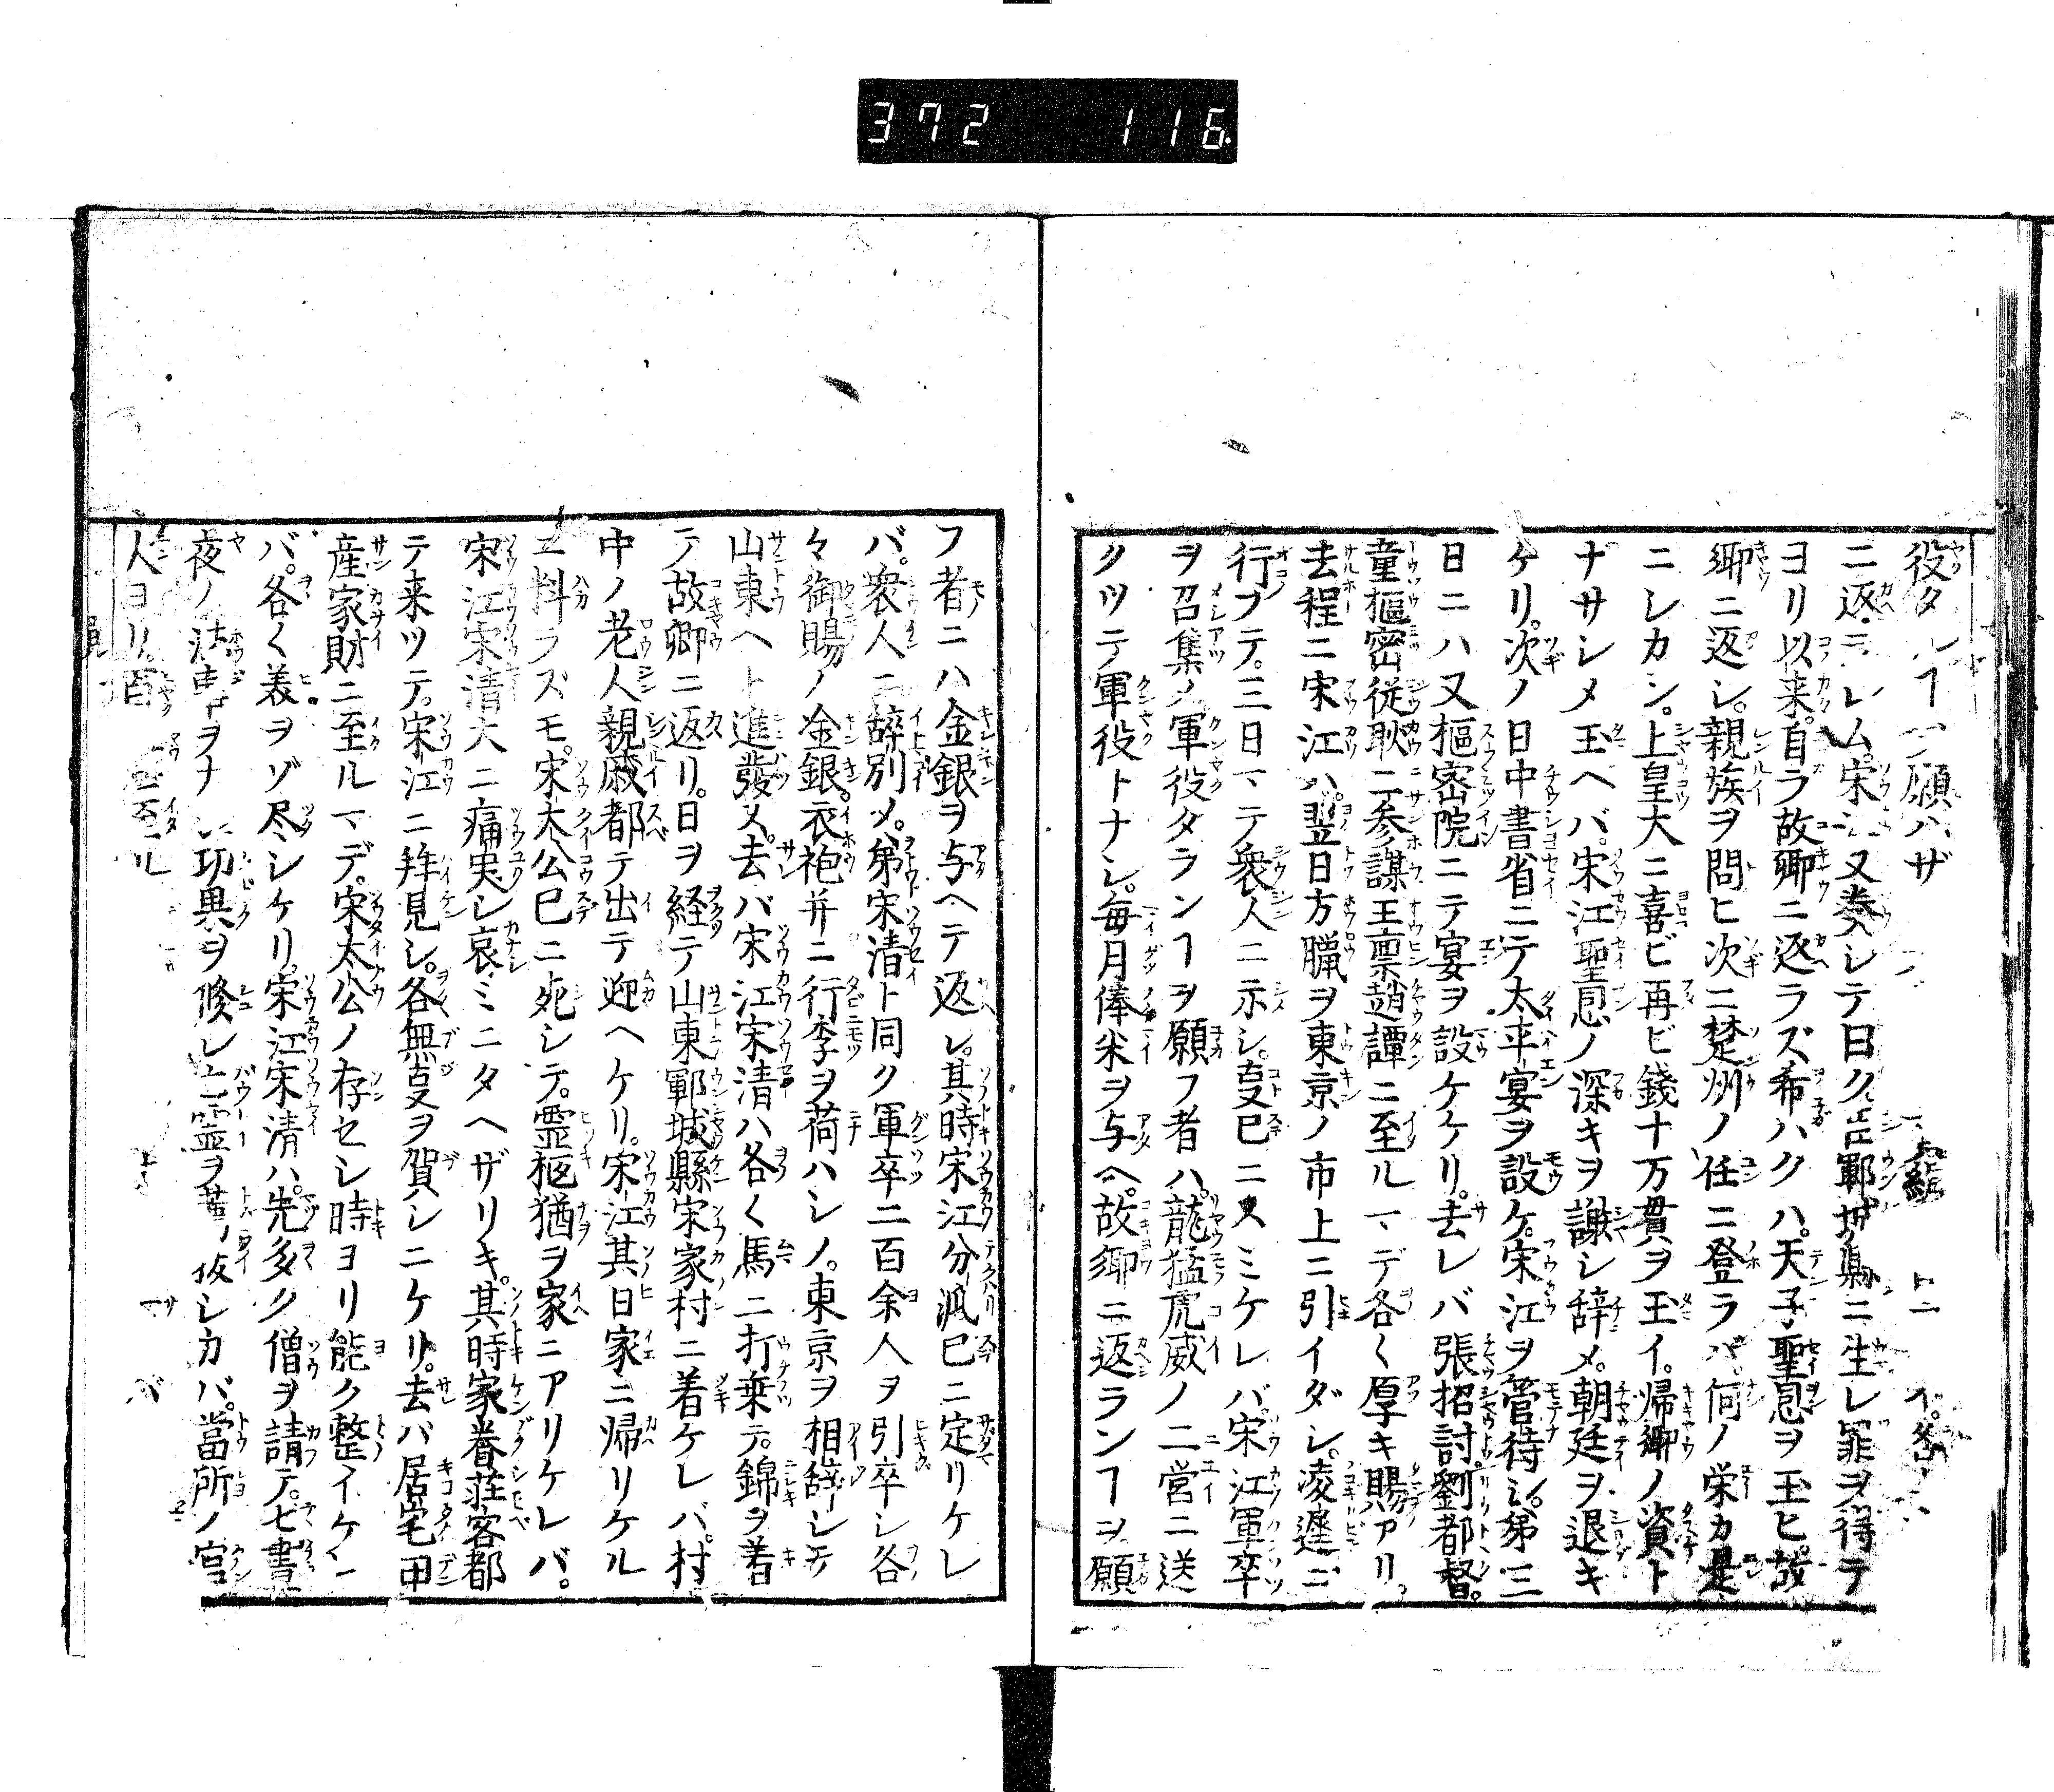 372 116
役タレヿヲ願ハザ
ニ返ラレム。宋江又奏シテ曰ク臣鄆城縣ニ生レ罪ヲ得テ
ヨリ以来。自ラ故郷ニ返ラズ希ハクハ。天子聖恩ヲ玉ヒ。故
郷ニ返シ。親族ヲ問ヒ次ニ楚州ノ任ニ登ラバ何ノ栄カ是
ニシカン。上皇大ニ喜ビ再ビ錢十万貫ヲ玉イ。帰郷ノ資ト
ナサシメ玉ヘバ。宋江聖恩ノ深キヲ謝シ辞メ。朝廷ヲ退キ
ケリ。次ノ日中書省ニテ太平宴ヲ設ケ。宋江ヲ管待シ。第三
日ニハ又樞密院ニテ宴ヲ設ケケリ。去レバ張招討劉都督。
童樞密従耿二参謀王禀趙譚ニ至ルマデ各〱厚キ賜アリ。
去程ニ宋江ハ。翌日方臘ヲ東京ノ市上ニ引イダシ。凌遅ニ
行フテ。三日マテ衆人ニ示シ。㕝已ニスミケレバ。宋江軍卒
ヲ召集メ軍役タランヿヲ願フ者ハ。龍猛虎威ノ二営ニ送
クツテ軍役トナシ。毎月俸米ヲ与ヘ。故郷ニ返ランヿヲ願
フ者ニハ金銀ヲ与ヘテ返シ。其時宋江分派已ニ定リケレ
バ。衆人ニ辞別メ。弟宋清ト同ク軍卒二百余人ヲ引卒シ各
々御賜ノ金銀。衣袍并ニ行李ヲ荷ハシメ。東京ヲ相辞シテ
山東ヘト進發ス。去バ宋江宋清ハ各〱馬ニ打乗テ。錦ヲ着
テ故郷ニ返リ。日ヲ経テ山東鄆城縣宋家村ニ着ケレバ。村
中ノ老人親戚都テ出テ迎ヘケリ。宋江其日家ニ帰リケル
ニ料ラズモ。宋太公已ニ死シテ。霊柩猶ヲ家ニアリケレバ。
宋江宋清大ニ痛哭シ哀ミニタヘザリキ。其時家眷荘客都
テ来ツテ。宋江ニ拜見シ。各無㕝ヲ賀シニケリ。去バ居宅田
産家財ニ至ルマデ。宋太公ノ存セシ時ヨリ能ク整イケン
バ。各〱義ヲゾ尽シケリ。宋江宋清ハ。先多ク僧ヲ請テ。七書
夜ノ法事ヲナシ功果ヲ修シ亡霊ヲ シカバ。當所ノ官
人ヨリ。百 ニ至ル